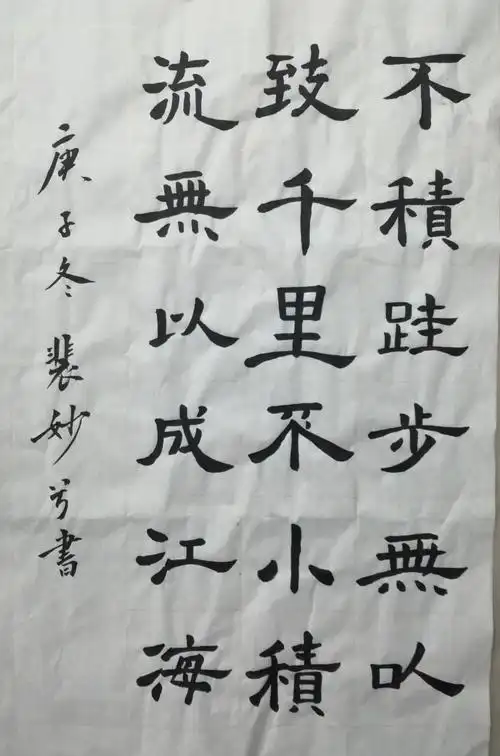 不積跬步無㕥
致千里不小積
流無以成江海
庚子冬裴妙兮書